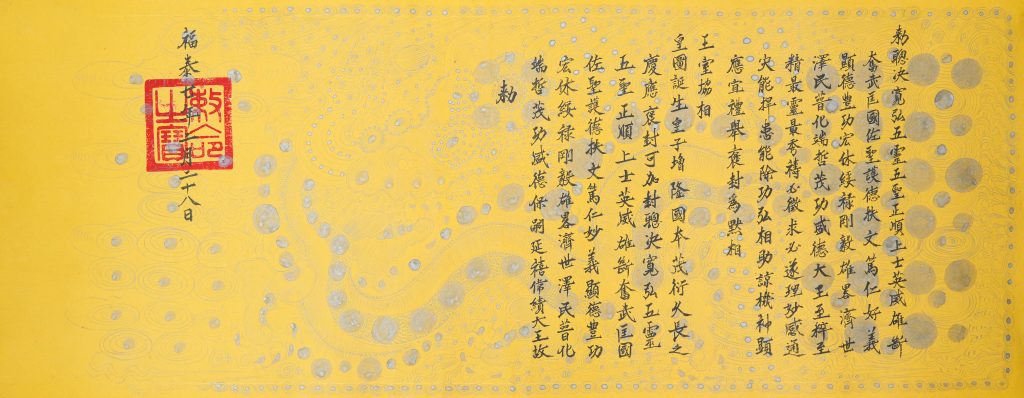 勅聰決寬弘五靈五聖正順上士英威雄斷
奮武匡國佐聖護德扶文篤仁好義
顯德豊功宏休綏祿剛毅雄畧濟世
澤民普化端哲茂功威德大王至精至
精最靈最秀禱必徵求必遂理妙感通
灾能捍患能除功弘相助諒機神顯
應宜禮舉褒封爲默相
王室協相
皇圖誕生皇子增隆國本茂衍久長之
慶應褒封可加封聰決寬弘五靈
五聖正順上士英威雄斷奮武匡國
佐聖護德扶文篤仁妙義顯德豊功
宏休綏祿剛毅雄畧濟世澤民普化
端哲茂功威德保嗣延禧偉績大王故
勅
福泰 年 月二十八日
敕命之寶